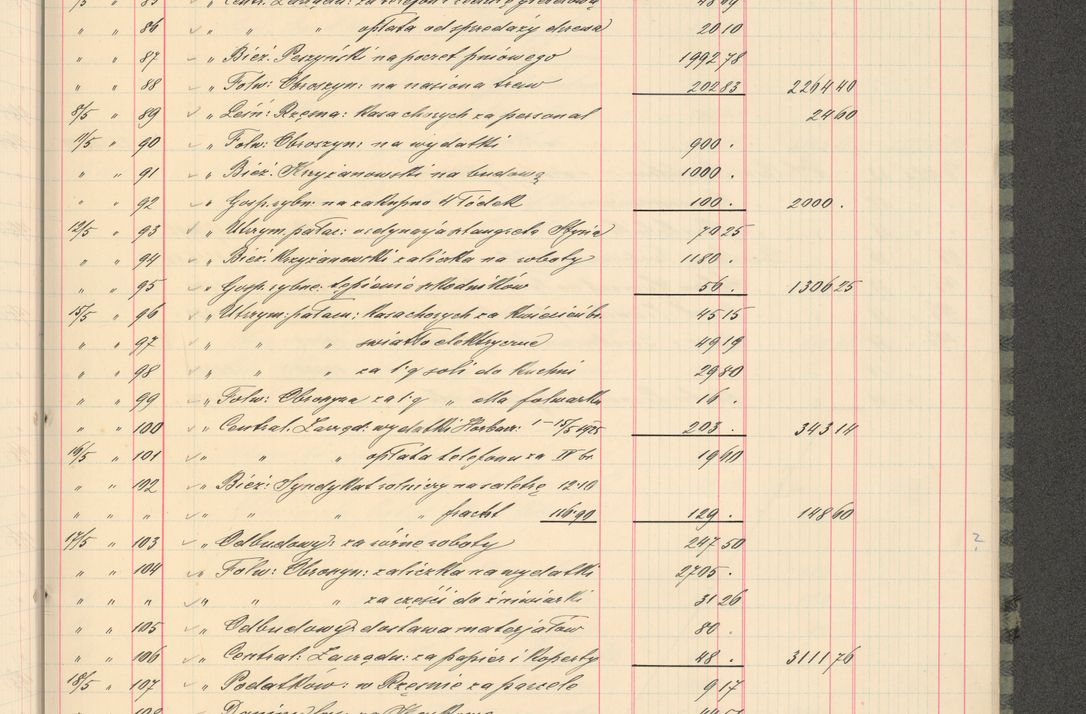 " " 86 " " " opłata od sprzedaży drzewa 20 10
" " 87 " Bież: Peszyński na poczet pniowego 1992 78
" " 88 " Folw: Obroszyn: na nasiona traw 202 83 2264 40
8/5 " 89 " Leśn: Rzęsna: Kasa chorych za personal 24 60
11/5 " 90 " Folw: Obroszyn: na wydatki 900 .
" " 91 " Bież: Krzyżanowski na budowę 1000 .
" " 92 " Gosp. rybn: na zakupno 4 łódek 100 . 2000 .
12/5 " 93 " Utrzym. pałac: 70 25
" " 94 " Bież: Krzyżanowski zaliczka na roboty 1180 .
" " 95 " Gosp. rybne: tępienie szkodników 56 . 1306 25
15/5 " 96 " Utrzym: pałacu: Kasa chorych za Kwiecień br. 45 15
" " 97 " " " światło elektryczne 49 19
" " 98 " " " za 1 q soli do kuchni 29 80
" " 99 " Folw: Obroszyn za 1 q " dla folwarku 16 .
" " 100 " Central: Zarząd: wydatki Horbacz: 1-15/5 1925 203 . 343 14
16/5 " 101 " " " opłata telefonu za IV br. 19 60
" " 102 " Bież: Syndykat rolniczy na saletrę 12·10
" " " " " " fracht 116·90 129 . 148 60
17/5 " 103 " Odbudowy: za różne roboty 247 50
" " 104 " Folw: Obroszyn: zaliczka na wydatki 2705 .
" " " " " " za części do żniwiarki 31 26
" " 105 " Odbudowy: dostawa materjałów 80 .
" " 106 " Central: Zarządu: za papier i koperty 48 . 3111 76
18/5 " 107 " Podatkow: w Rzęśnie za parcele 9 17
?